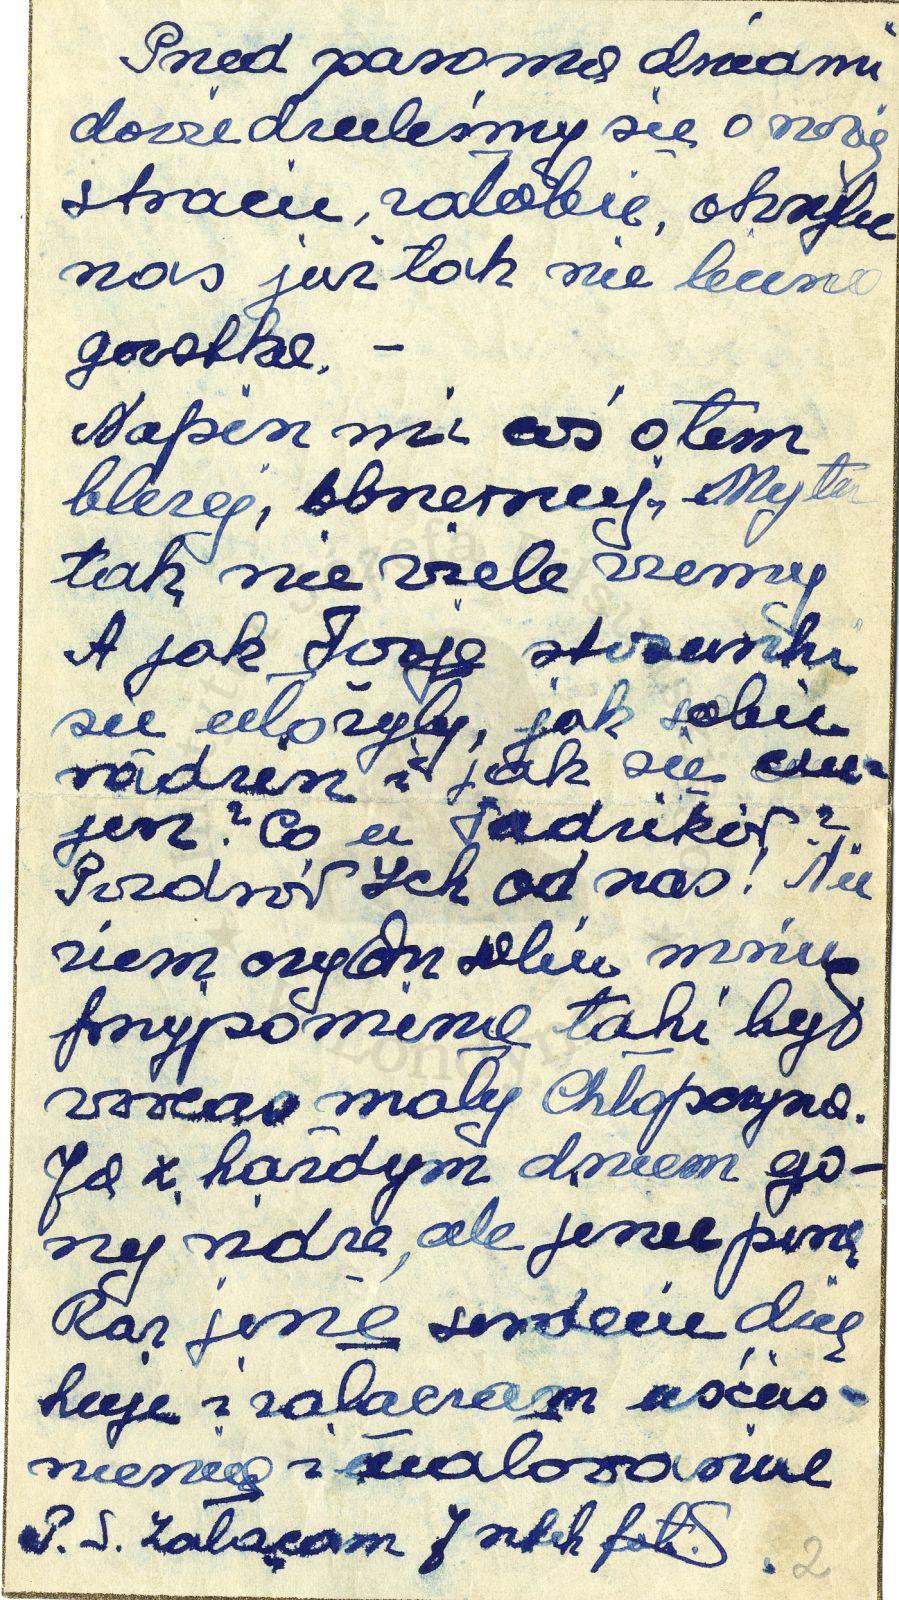 Przed paroma dniami
dowiedzieliśmy się o nowej
stracie, żałobie, okryła
nas już tak nie liczną
garstkę. –
Napisz mi coś o tem
bliżej, obszerniej, My tu
tak nie wiele wiemy
A jak Twoje stosunki
się ułożyły, jak sobie
radzisz i jak się czu-
jesz? Co u Tadzików?
Pozdrów Ich od nas! Nie
wiem czy On sobie mnie
przypomina taki był
wówczas mały Chłopczyna.
Ja z każdym dniem go-
rzej widzę, ale jeszcze piszę
Raz jeszcze serdecznie dzię
kuję i załączam uścis-
nienia i ucałowania
P.S. Załączam fot.
2